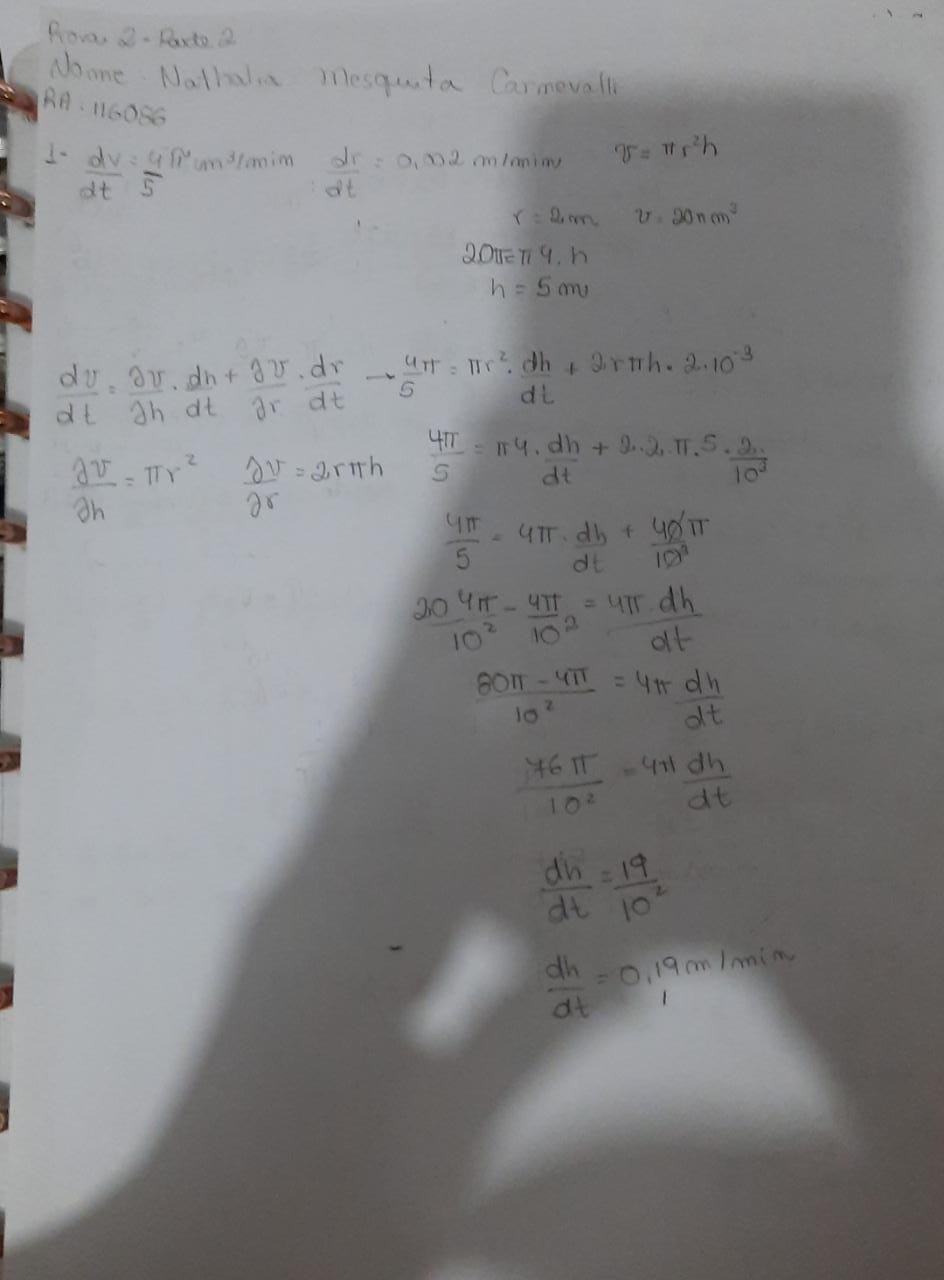 Prova 2 - Parte 2
Nome: Nathalia Mesquita Carnevalli
RA: 116086
1- dv/dt = 4π/5 m³/min dr/dt = 0,002 m/min v = πr²h
r = 2m v = 20π m³
20π = π4.h
h = 5m
dv/dt = ∂v/∂h . dh/dt + ∂v/∂r . dr/dt → 4π/5 = πr². dh/dt + 2rπh. 2.10⁻³
∂v/∂h = πr² ∂v/∂r = 2rπh 4π/5 = π4. dh/dt + 2.2.π.5. 2/10³
4π/5 = 4π. dh/dt + 40π/10³
20 4π/10² - 4π/10² = 4π dh/dt
80π - 4π/10² = 4π dh/dt
76π/10² = 4π dh/dt
dh/dt = 19/10²
dh/dt = 0,19m/min